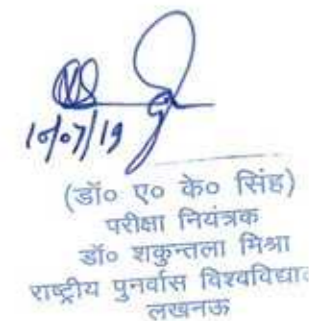 10/07/19
(डॉ० ए० के० सिंह)
परीक्षा नियंत्रक
डॉ० शकुन्तला मिश्रा
राष्ट्रीय पुनर्वास
लखनऊ